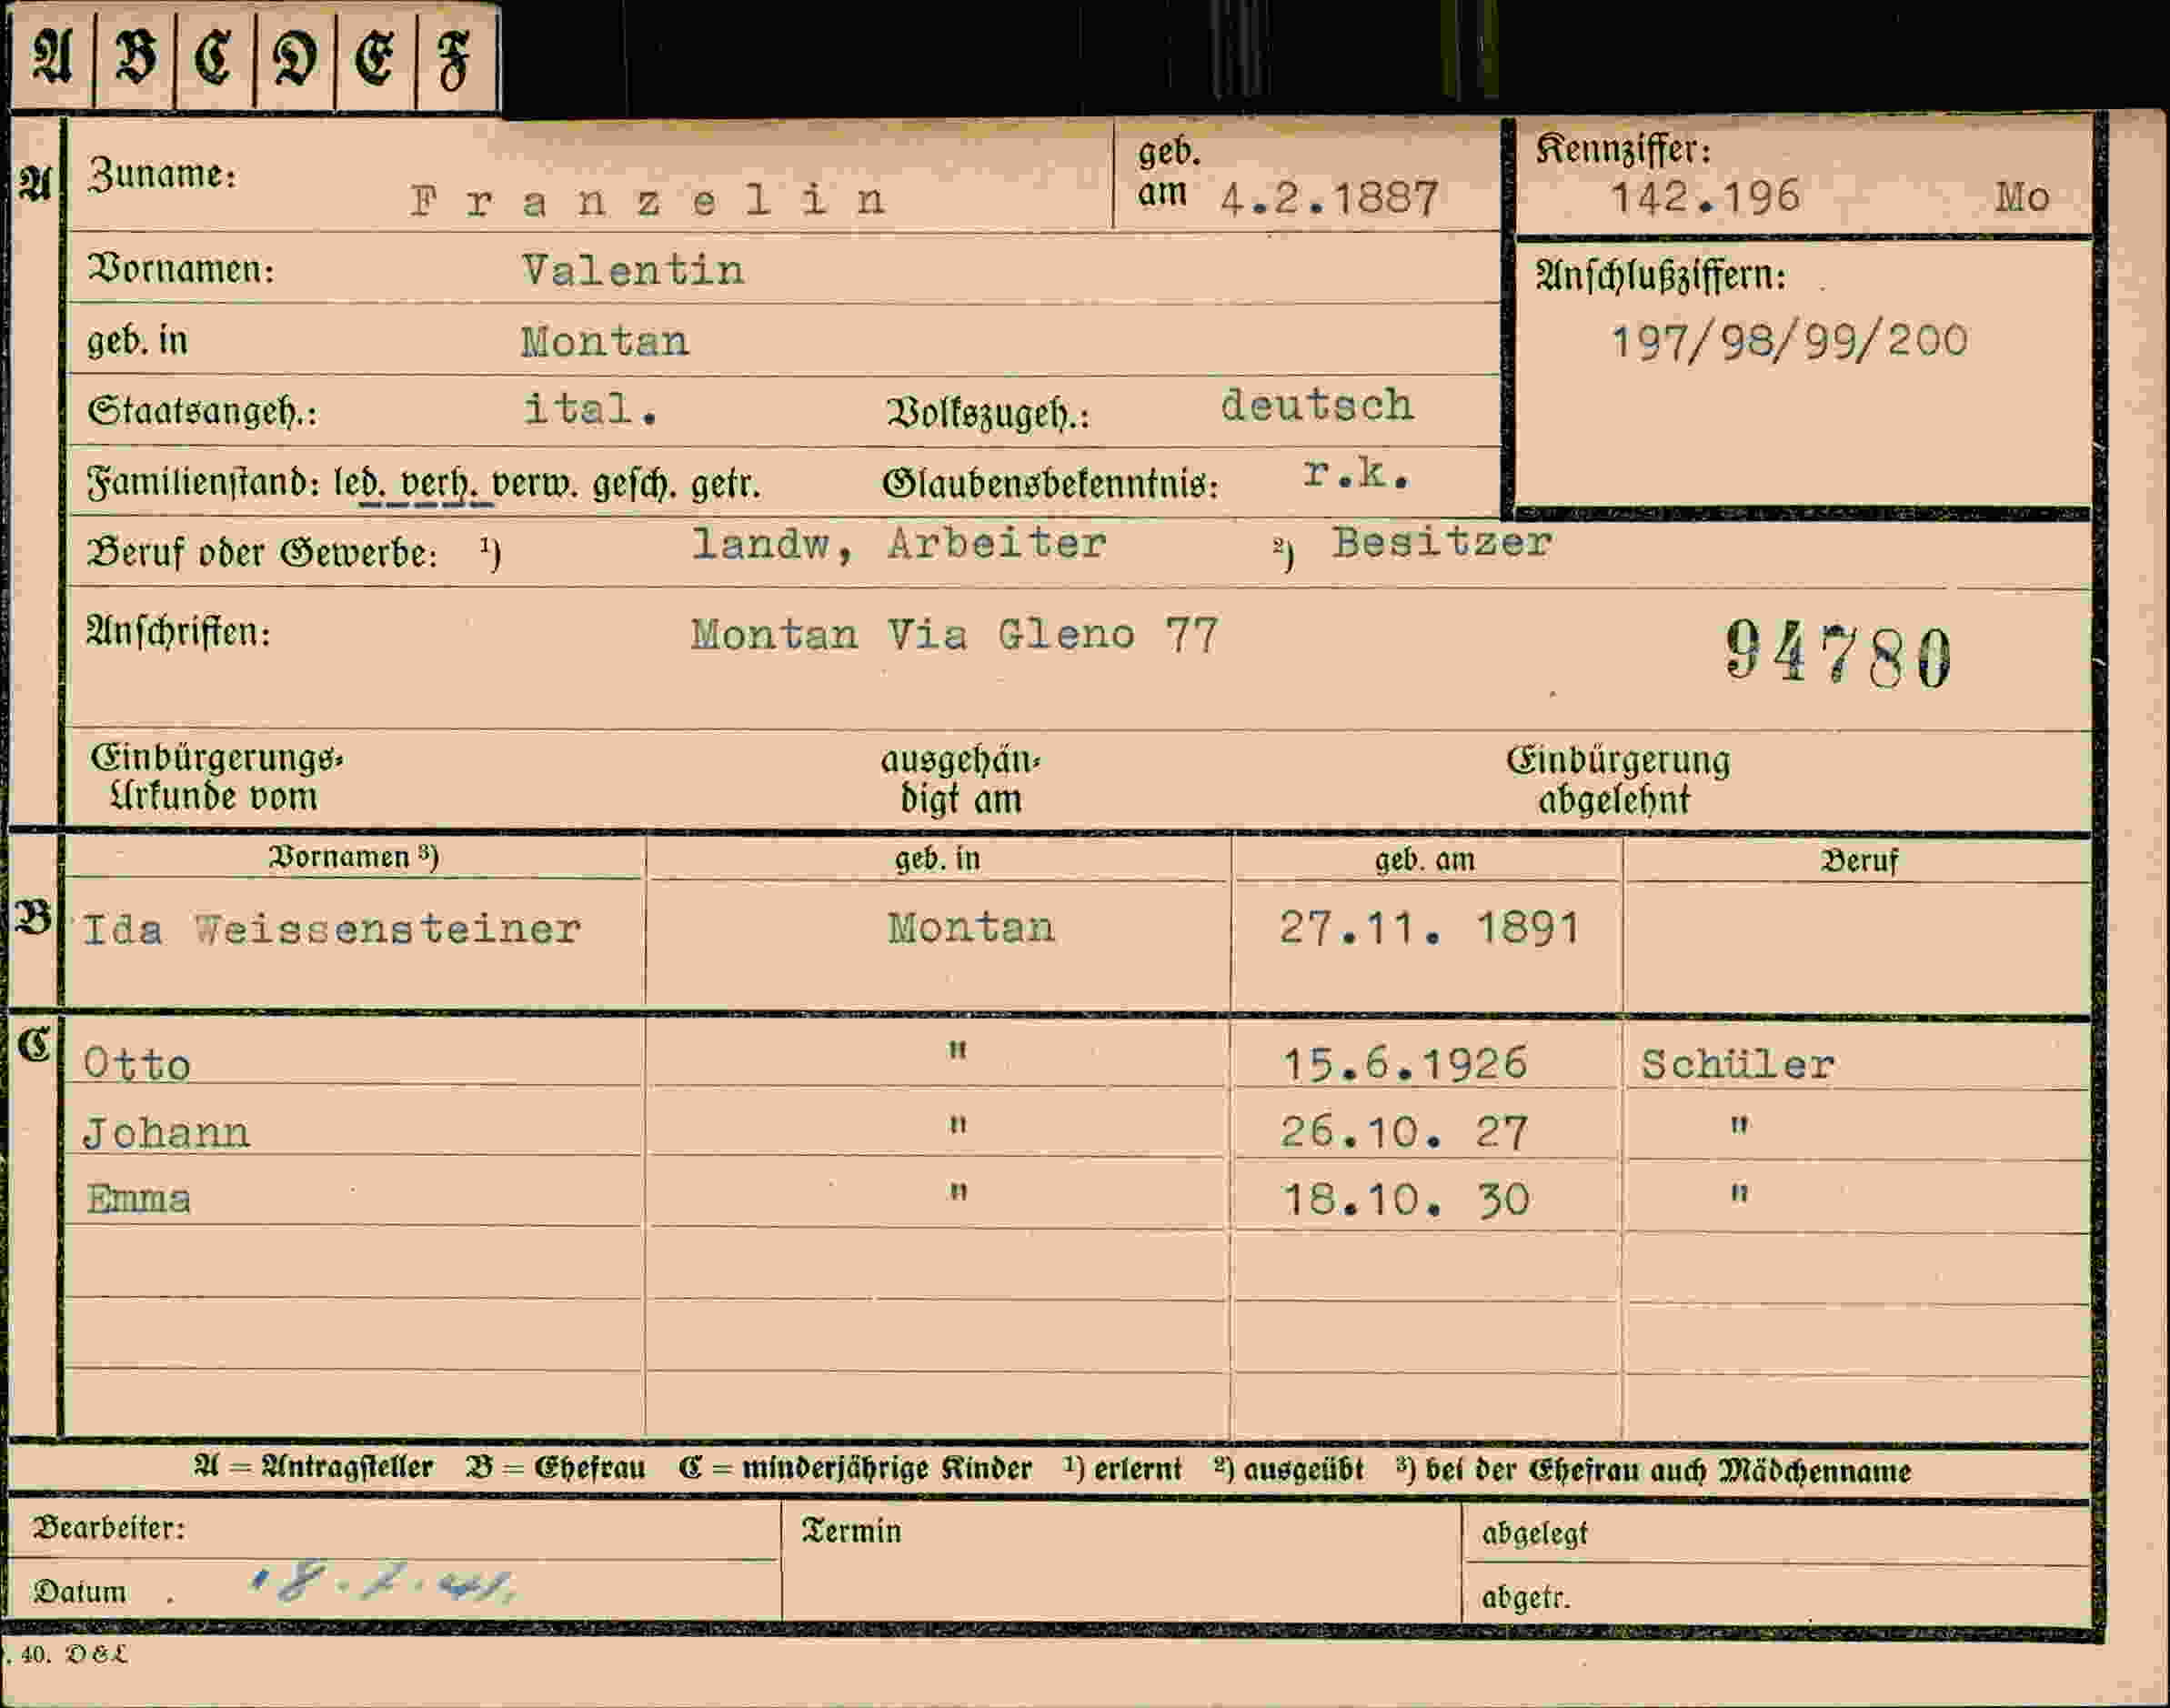 A B C D E F
A Zuname: Franzelin geb. am 4.2.1887 Kennziffer: 142.196 Mo
Vornamen: Valentin Anschlußziffern:
geb. in Montan 197/98/99/200
Staatsangeh.: ital. Volkszugeh.: deutsch
Familienstand: led. verh. verw. gesch. getr. Glaubensbekenntnis: r.k.
Beruf oder Gewerbe: ¹) landw, Arbeiter ²) Besitzer
Anschriften: Montan Via Gleno 77 94780
Einbürgerungs- ausgehän- Einbürgerung
Urkunde vom digt am abgelehnt
Vornamen ³) geb. in geb. am Beruf
B Ida Weissensteiner Montan 27.11. 1891
C Otto " 15.6.1926 Schüler
Johann " 26.10. 27 "
Emma " 18.10. 30 "
A = Antragsteller B = Ehefrau C = minderjährige Kinder ¹) erlernt ²) ausgeübt ³) bei der Ehefrau auch Mädchenname
Bearbeiter: Termin abgelegt
Datum abgetr.
. 40. D & L